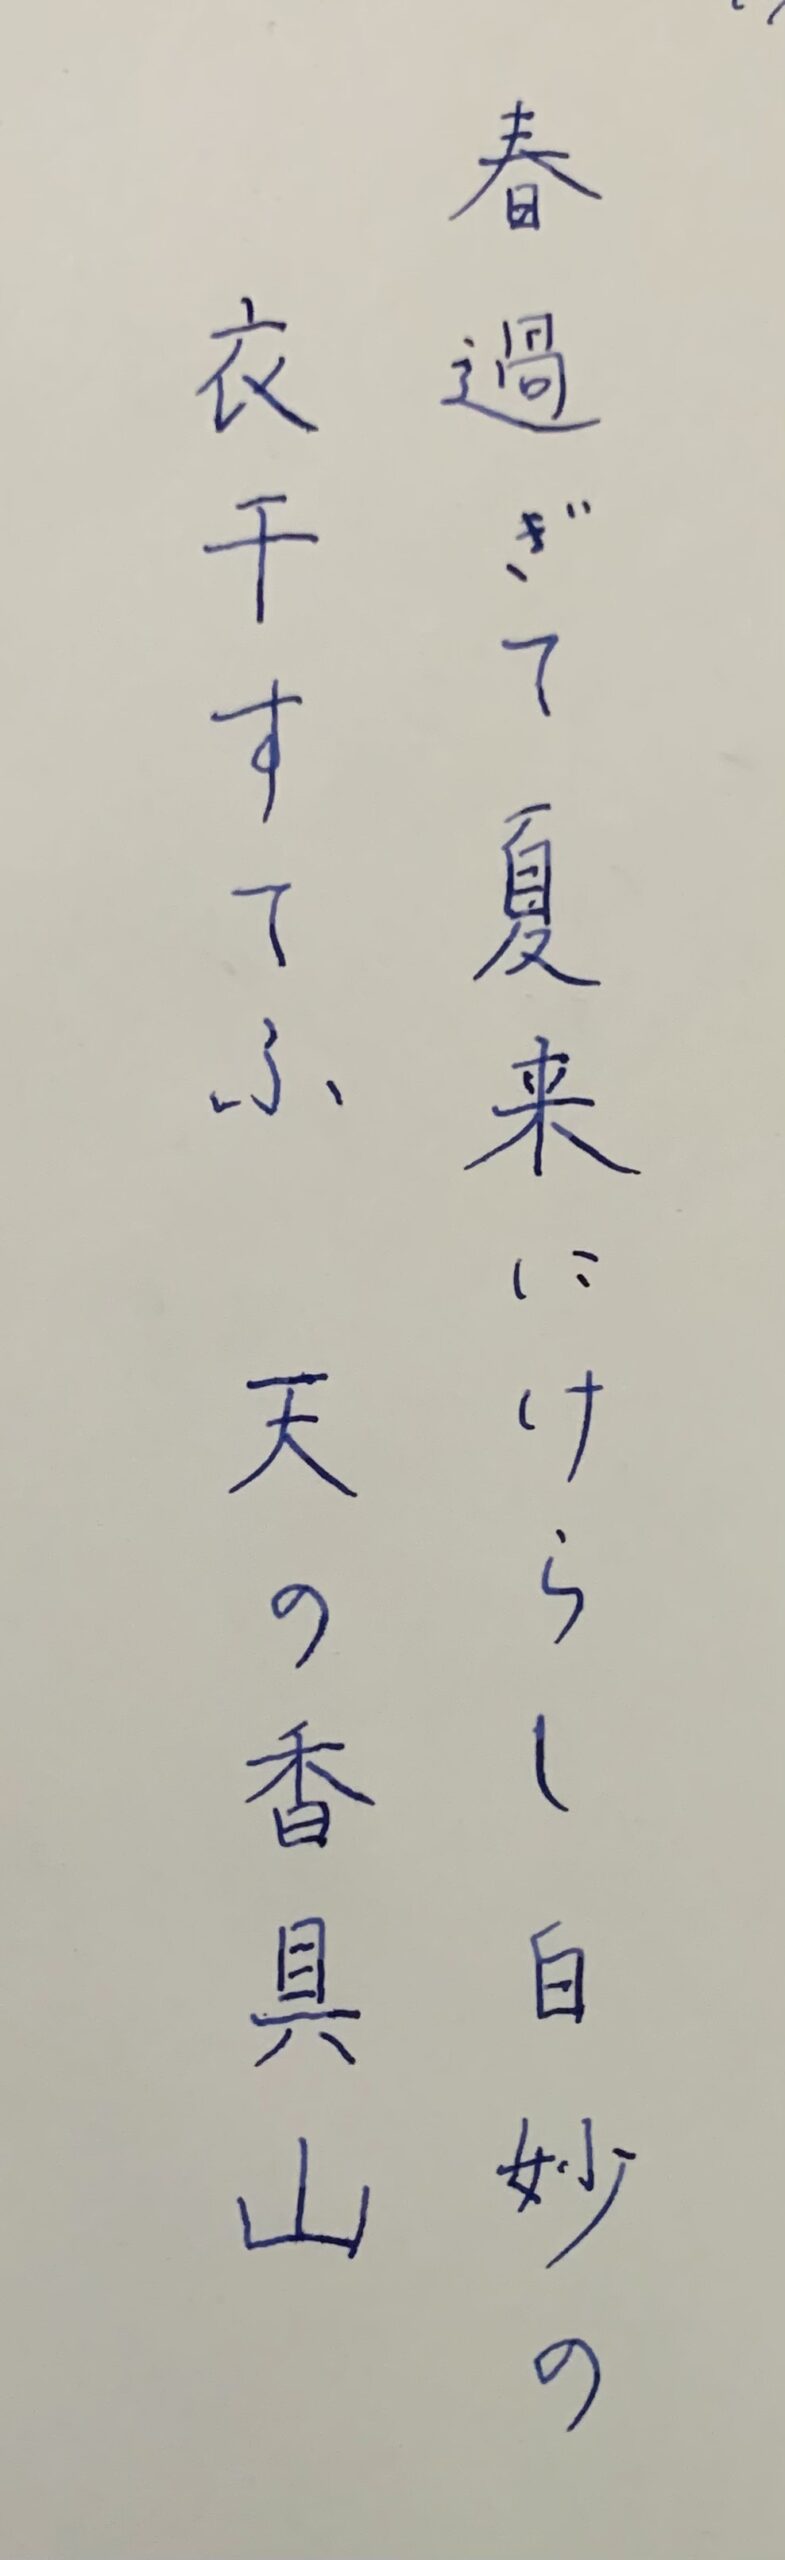 春過ぎて夏来にけらし白妙の
衣干すてふ　天の香具山